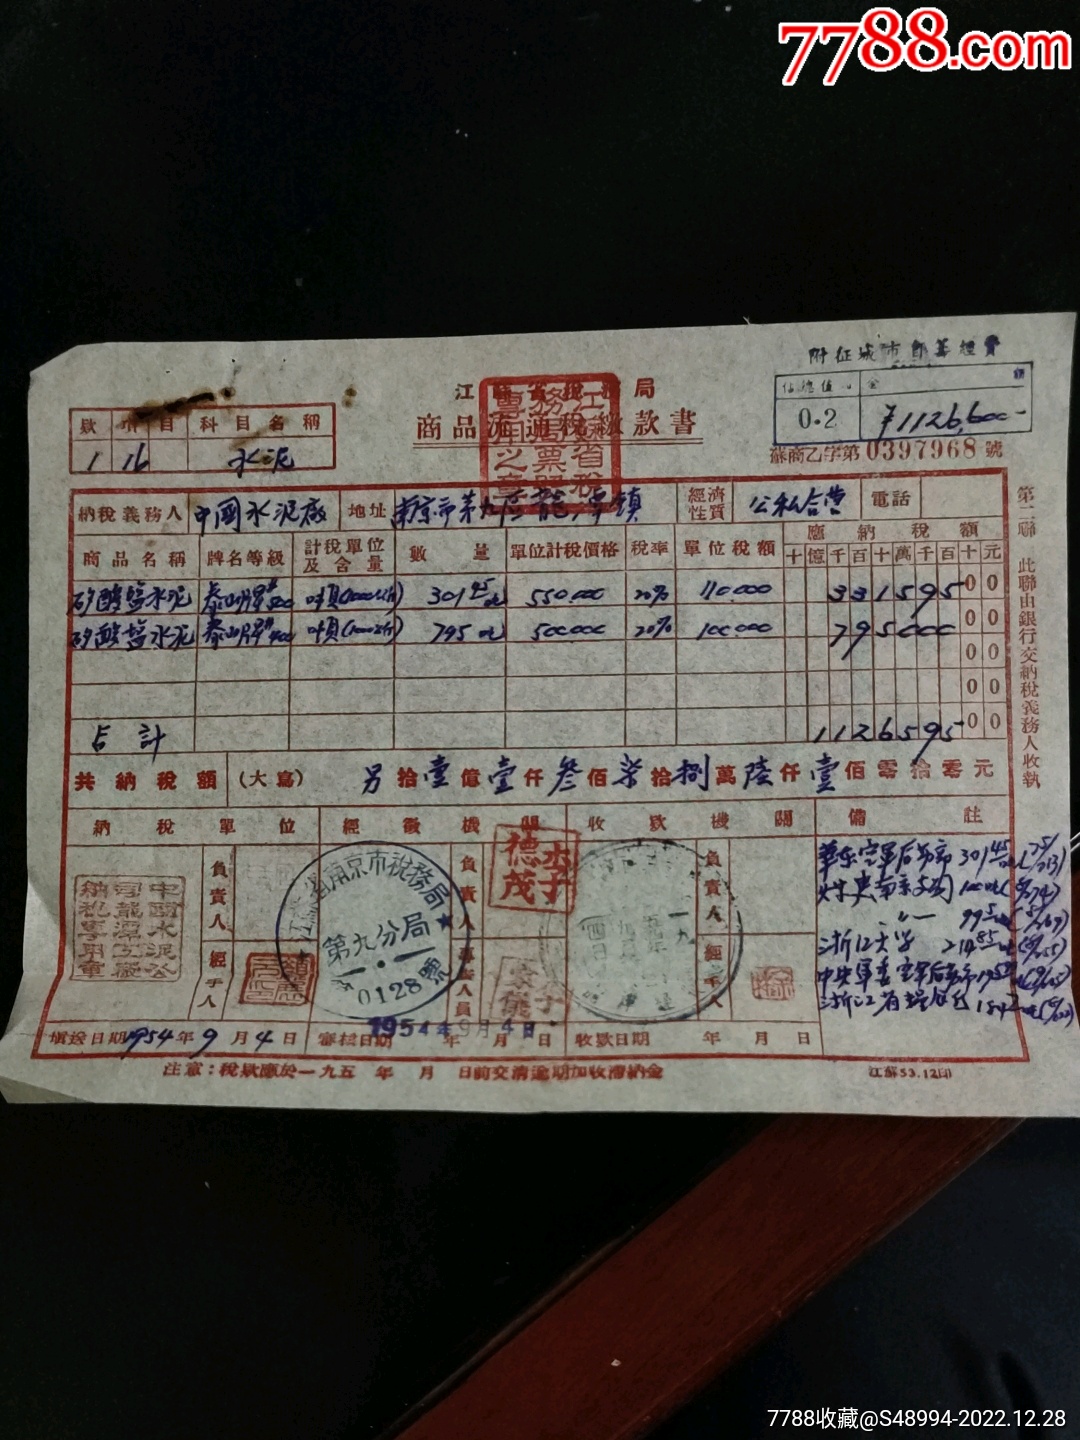 7788.com
附征城市自筹經費
估總值% 金 額
0.2 ￥1126,600-
江蘇省稅務局
商品流通稅繳款書
蘇商乙字第0397968號
款 項 目 科目名稱
1 16 水泥
納稅義務人 中國水泥廠 地址 南京市第九区龍潭镇 經濟性質 公私合营 電話
商品名稱 牌名等級 計稅單位及含量 數量 單位計稅價格 稅率 單位稅額 應納稅額
十億千百十萬千百十元
矽酸盐水泥 泰山牌#500 吨(1000公斤) 301.45 550.000 20% 110.000 33159500
矽酸盐水泥 泰山牌#400 吨(1000公斤) 795 500.000 20% 100.000 79500000
00
00
合計 112659500
共納稅額 (大寫) 另拾壹億壹仟叁佰柒拾捌萬陸仟壹佰零拾零元
納稅單位 經徵機關 收款機關 備註
負責人 負責人 負責人
經手人 經手人
中國水泥公司龍潭工廠納稅專用章
江蘇省南京市稅務局
第九分局
0128號
李德茂子
華东空軍后勤部 301.45
浙江大学 214.85
填送日期1954年9月4日 審核日期 年 月 日 收款日期 年 月 日
1954年9月4日
注意：稅款應於一九五 年 月 日前交清逾期加收滯納金
江蘇53.12印
第二聯 此聯由銀行交納稅義務人收執
7788收藏@S48994-2022.12.28